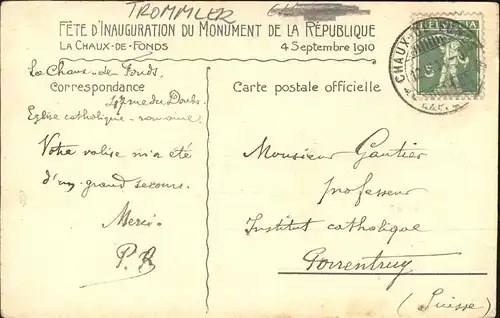 TROMMLER
FÊTE D'INAUGURATION DU MONUMENT DE LA RÉPUBLIQUE
LA CHAUX-DE-FONDS 4 SEPTEMBRE 1910
HELVETIA
CHAUX-
5
La Chaux-de-Fonds,
Correspondance
47 rue du Doubs.
Eglise catholique-romaine
Votre valise m'a été
d'un grand secours.
Merci.
P. R
Carte postale officielle
Monsieur Gautier
professeur
Institut catholique
Porrentruy
(Suisse)